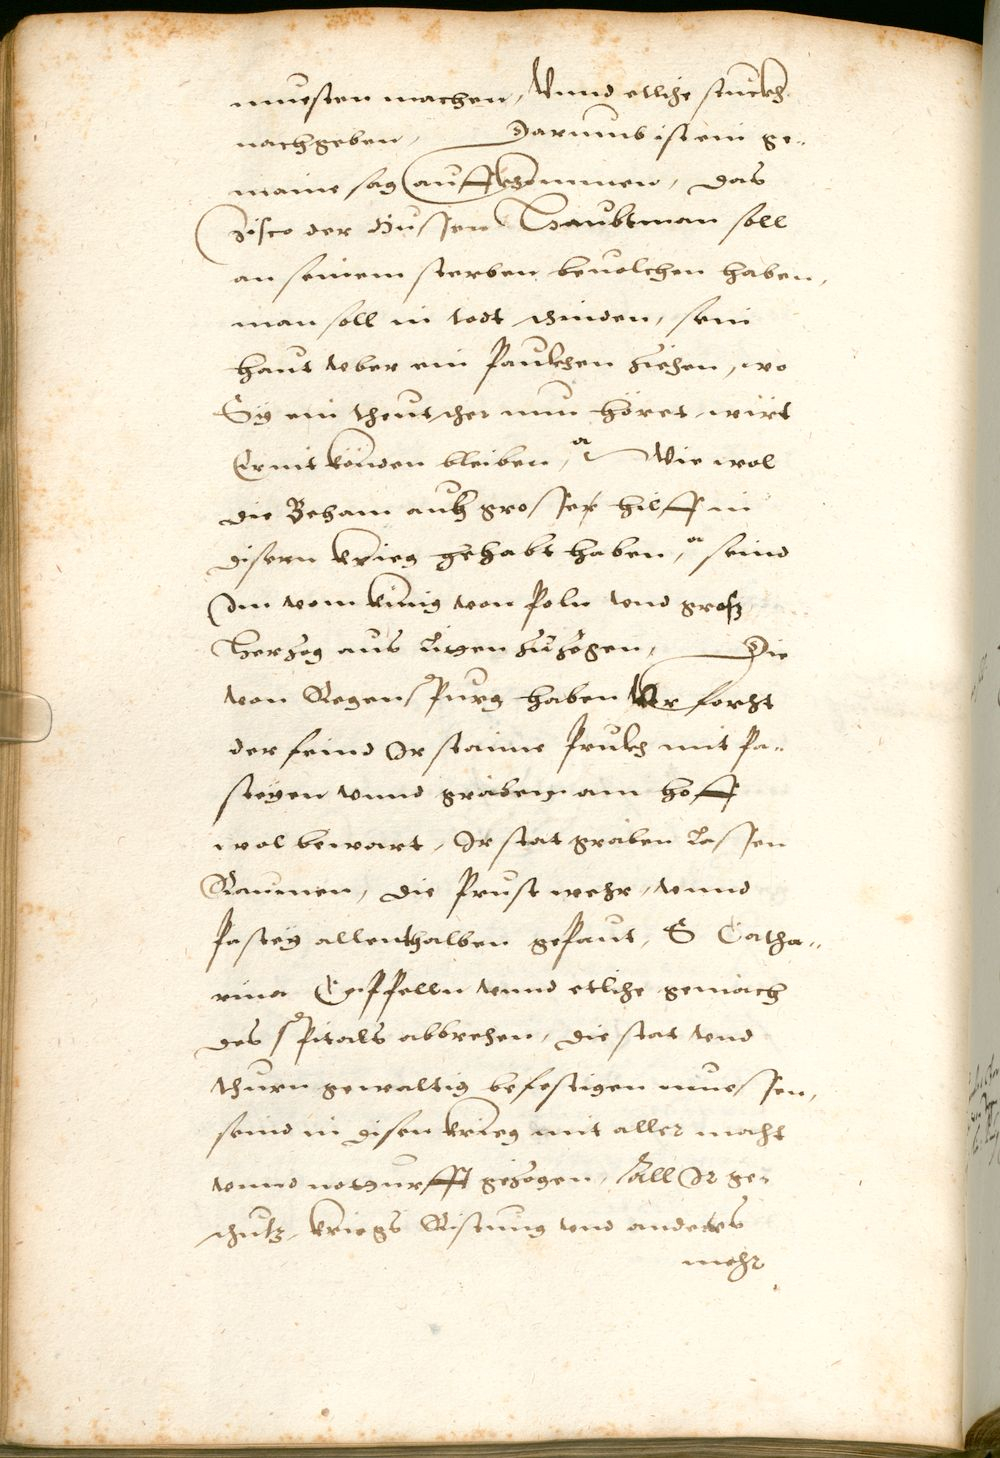 muesten machen, Vnnd etliche stuckh
nachgeben, Darumb ist ein ge-
maine sag auffkhommen, das
Zisco der Hussen Haubtman soll
an seinem sterben beuolchen haben,
man soll in todt schinden, sein
haut vber ein Paukhen ziehen, wo
Sÿ ein theutscher nun höret, wirt
Er nit könden bleiben, Wie wol
die Beham auch grosse hilff in
disem krieg gehabt haben, seind
Im vom künig von Poln vnd groß
Herzog aus Litten zuzogen, Die
von Regenspurg haben Vor forcht
der feind Ir staine Prukh mit Pa-
steÿen vnnd graben am hoff
wol bewart, Ir stat graben Lassen
Raumen, die Prustwehr, vnnd
Pasteÿ allenthalben gepaut, S Catha-
rina Cappelln vnnd etliche gemach
des Spitals abbrechen, die stat vnd
thurn gewaltig befestigen muessen,
seind in disen krieg mit aller macht
vnnd notdurfft gezogen, All Ir ge-
schutz, kriegs Ristung vnd anders
mehr